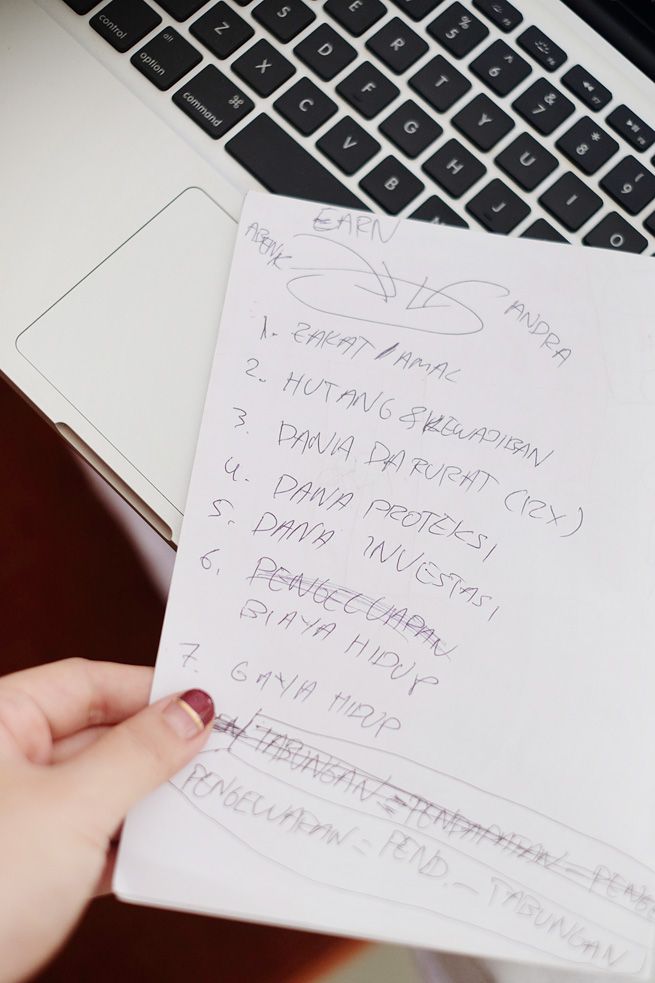 control
alt
option
command
⌘
Z
X
C
V
B
S
D
F
G
H
J
E
R
T
Y
U
I
O
%
5
^
6
&
7
*
8
(
9
EARN
ABENK
ANDRA
1. ZAKAT / AMAL
2. HUTANG & KEWAJIBAN
3. DANA DARURAT (12X)
4. DANA PROTEKSI
5. DANA INVESTASI
6. PENGELUARAN
BIAYA HIDUP
7. GAYA HIDUP
TABUNGAN = PENDAPATAN - PENGE
PENGELUARAN = PEND. - TABUNGAN